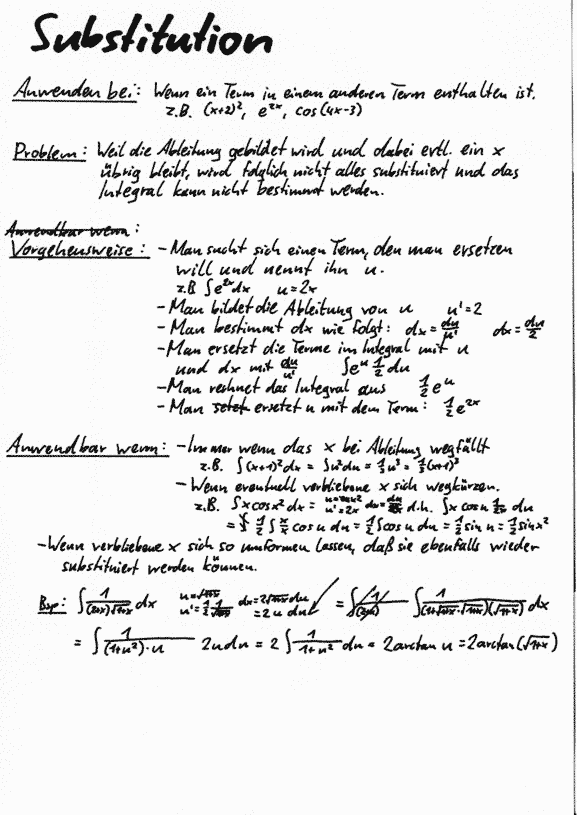 Substitution
Anwenden bei: Wenn ein Term in einem anderen Term enthalten ist.
z.B. (x+2)², e^{2x}, cos(4x-3)
Problem: Weil die Ableitung gebildet wird und dabei evtl. ein x
übrig bleibt, wird folglich nicht alles substituiert und das
Integral kann nicht bestimmt werden.
Anwendbar wenn:
Vorgehensweise: - Man sucht sich einen Term, den man ersetzen
will und nennt ihn u.
z.B ∫e^{2x}dx u=2x
- Man bildet die Ableitung von u u'=2
- Man bestimmt dx wie folgt: dx = du/u' dx = du/2
- Man ersetzt die Terme im Integral mit u
und dx mit du/u' ∫e^u 1/2 du
- Man rechnet das Integral aus 1/2 e^u
- Man setzt ersetzt u mit dem Term: 1/2 e^{2x}
Anwendbar wenn: - Immer wenn das x bei Ableitung wegfällt
z.B. ∫(x+1)²dx = ∫u²du = 1/3 u³ = 1/3 (x+1)³
- Wenn eventuell verbliebene x sich wegkürzen.
z.B. ∫x cos x² dx = u'=2x d.h. ∫x cos u 1/2x du
= 1/2 ∫ x/x cos u du = 1/2 ∫cos u du = 1/2 sin u = 1/2 sin x²
- Wenn verbliebene x sich so umformen lassen, daß sie ebenfalls wieder
substituiert werden können.
Bsp: ∫ 1/((2+x)√(1+x)) dx u=√(1+x) dx=2√(1+x) du = ∫ 1/((1+√(1+x)·√(1+x))(√(1+x))) dx
u'=1/2 · 1/√(1+x) =2u du
= ∫ 1/((1+u²)·u) 2u du = 2 ∫ 1/(1+u²) du = 2 arctan u = 2 arctan(√(1+x))